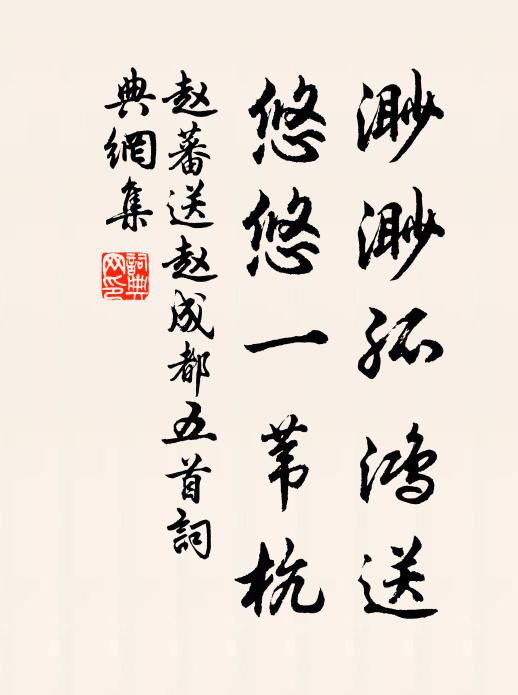 渺渺孤鸿送
悠悠一苇杭
赵蕃送赵成都五首詞
典網集
詞典網印